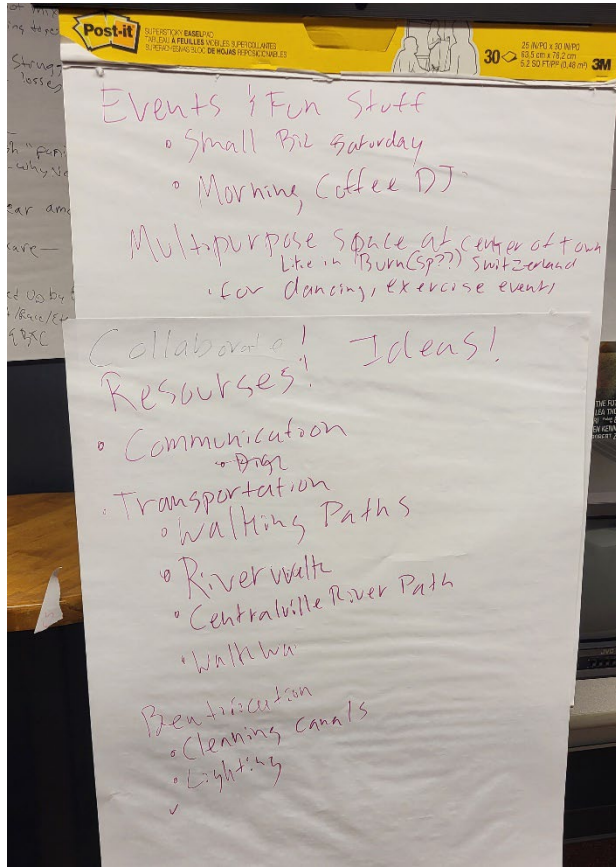 Post-it
SUPERSTICKY EASEL PAD
TABLEAU À FEUILLES MOBILES SUPERCOLLANTES
BLOC DE HOJAS REPOSICIONABLES
30
25 IN/PO x 30 IN/PO
63,5 cm x 76,2 cm
5.2 SQ FT/PI² (0,48 m²)
3M
Events & Fun Stuff
• Small Biz Saturday
• Morning Coffee DJ
Multipurpose space at center of town
Like in Burn(sp??) Switzerland
• for dancing, exercise events
Collaborate! Ideas!
Resourses!
• Communication
• Transportation
• Walking Paths
• Riverwalk
• Centralville River Path
• Walkwa
• Cleaning canals
• Lighting
losses